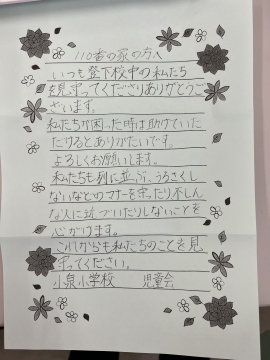 110番の家の方へ
いつも登下校中の私たち
を見守ってくださりありがとうご
ざいます。
私たちが困った時は助けていた
だけるとありがたいです。
よろしくお願いします。
私たちも列に並ぶ、うるさくし
ないなどのマナーを守ったり不しん
な人に近づいたりしないことを
心がけます。
これからも私たちのことを見
守ってください。
小泉小学校　児童会